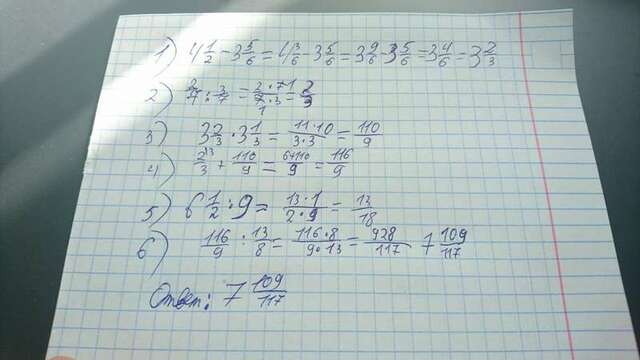 1) 4 1/2 - 3 5/6 = 4 3/6 - 3 5/6 = 3 9/6 - 3 5/6 = 3 4/6 = 3 2/3
2) 2/7 : 3/7 = 2·7 1/7·3 1 = 2/3
3) 3 2/3 · 3 1/3 = 11·10/3·3 = 110/9
4) 2/3 \3 + 110/9 = 6+110/9 = 116/9
5) 6 1/2 : 9 = 13·1/2·9 = 13/18
6) 116/9 : 13/8 = 116·8/9·13 = 928/117 7 109/117
Ответ: 7 109/117